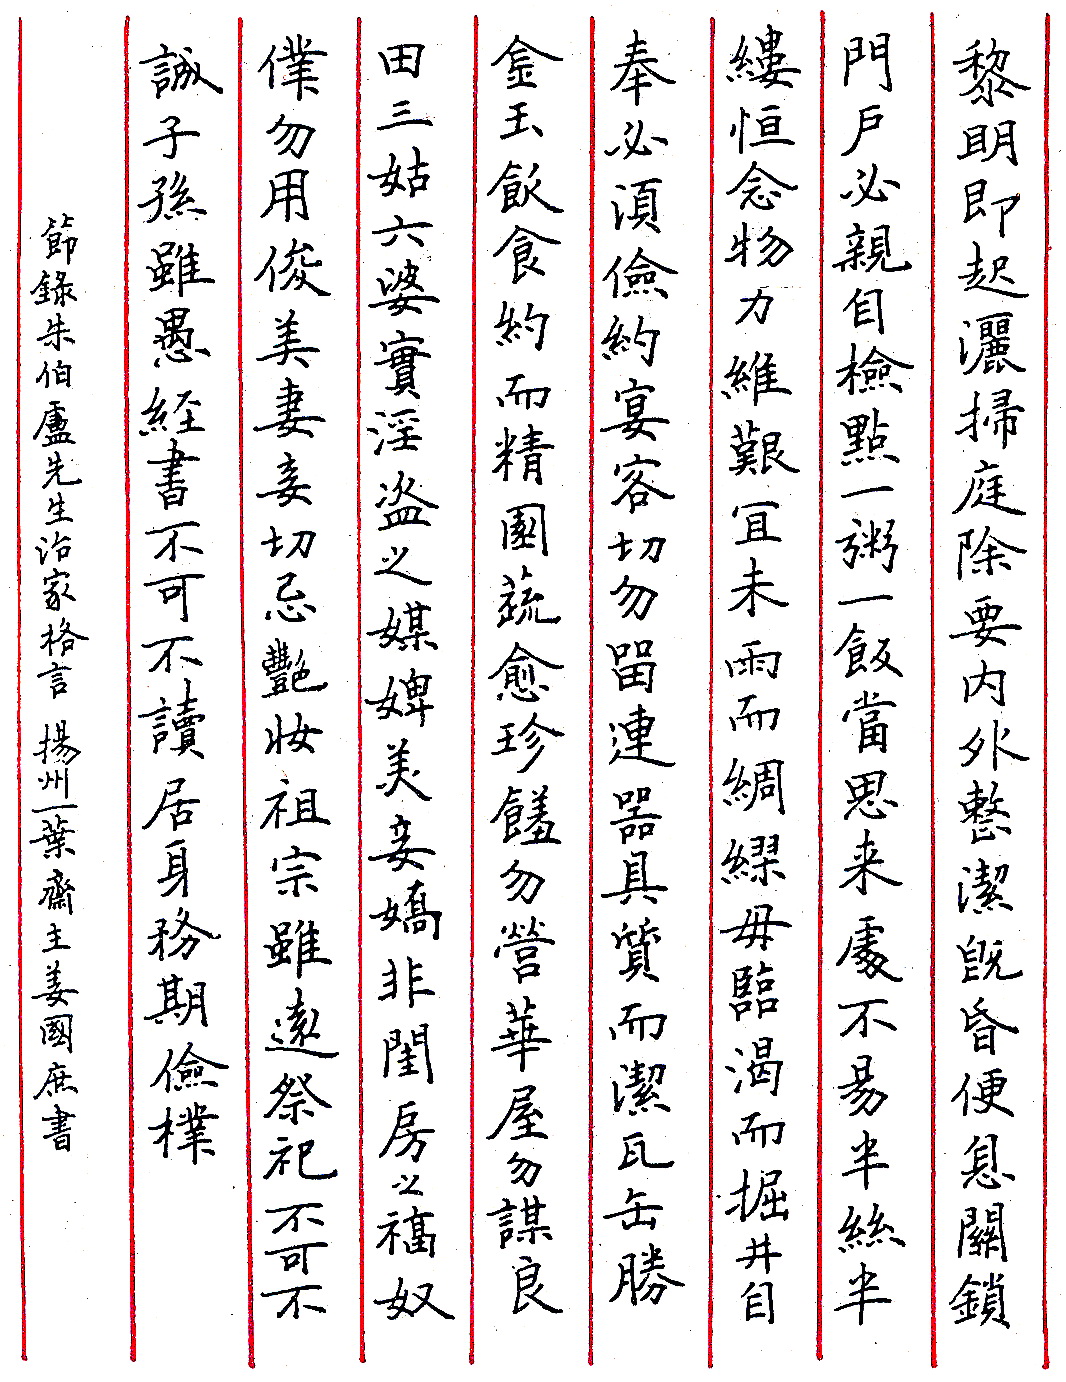 黎明即起灑掃庭除要内外整潔既昏便息關鎖
門戶必親自檢點一粥一飯當思来處不易半絲半
縷恒念物力維艱宜未雨而綢繆毋臨渴而掘井自
奉必須儉約宴客切勿留連器具質而潔瓦缶勝
金玉飲食約而精園蔬愈珍饈勿營華屋勿謀良
田三姑六婆實淫盗之媒婢美妾嬌非閨房之福奴
僕勿用俊美妻妾切忌艷妝祖宗雖遠祭祀不可不
誠子孫雖愚経書不可不讀居身務期儉樸
節錄朱伯盧先生治家格言 揚州一葉齋主姜國庶書